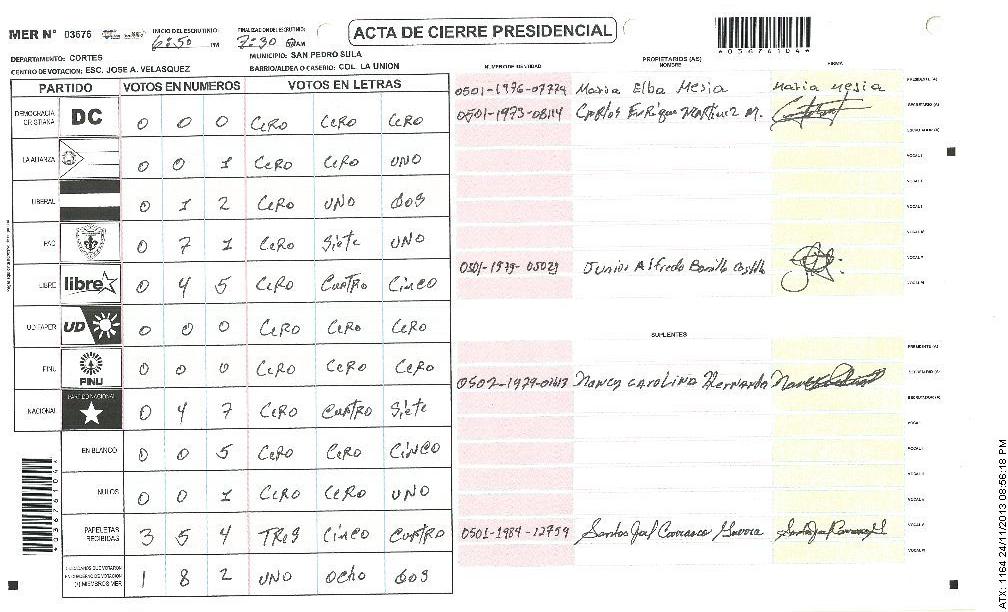 MER N° 03676
INICIO DEL ESCRUTINIO: 6:50 PM
FINALIZACION ESCRUTINIO: 7:30 AM
ACTA DE CIERRE PRESIDENCIAL
*03676104*
DEPARTAMENTO: CORTES
MUNICIPIO: SAN PEDRO SULA
CENTRO DE VOTACION: ESC. JOSE A. VELASQUEZ
BARRIO/ALDEA O CASERIO: COL. LA UNION
PARTIDO VOTOS EN NUMEROS VOTOS EN LETRAS
DEMOCRACIA CRISTIANA DC 0 0 0 CERO CERO CERO
LA ALIANZA 0 0 1 CERO CERO UNO
LIBERAL 0 1 2 CERO UNO dos
PAC 0 7 1 CERO Siete UNO
LIBRE libre 0 4 5 CERO CUATRO CiNCO
UD FAPER UD 0 0 0 CERO CERO CERO
PINU PINU 0 0 0 CERO CERO CERO
NACIONAL PARTIDO NACIONAL 0 4 7 CERO CUATRO Siete
EN BLANCO 0 0 5 CERO CERO CiNCO
NULOS 0 0 1 CERO CERO UNO
PAPELETAS RECIBIDAS 3 5 4 TRES CiNCO CUATRO
CIUDADANOS QUE VOTARON EN CUADERNO DE VOTACION (+) MIEMBROS MER 1 8 2 UNO OCHO dos
*03676104*
PROPIETARIOS (AS)
NUMERO DE IDENTIDAD NOMBRE FIRMA
0501-1976-07774 Maria Elba Mesia maria mesia PRESIDENTE (A)
0501-1973-08114 Carlos Enrique Martinez M. SECRETARIO (A)
ESCRUTADOR (A)
VOCAL I
VOCAL II
0501-1979-05029 Junior Alfredo Bonilla Castillo
SUPLENTES
PRESIDENTE (A)
NANCY CAROLINA Hernandez SECRETARIO (A)
ESCRUTADOR (A)
VOCAL I
VOCAL II
0501-1984-12759 Santos Joel Carranza
ATX: 1164 24/11/2013 08:56:18 PM